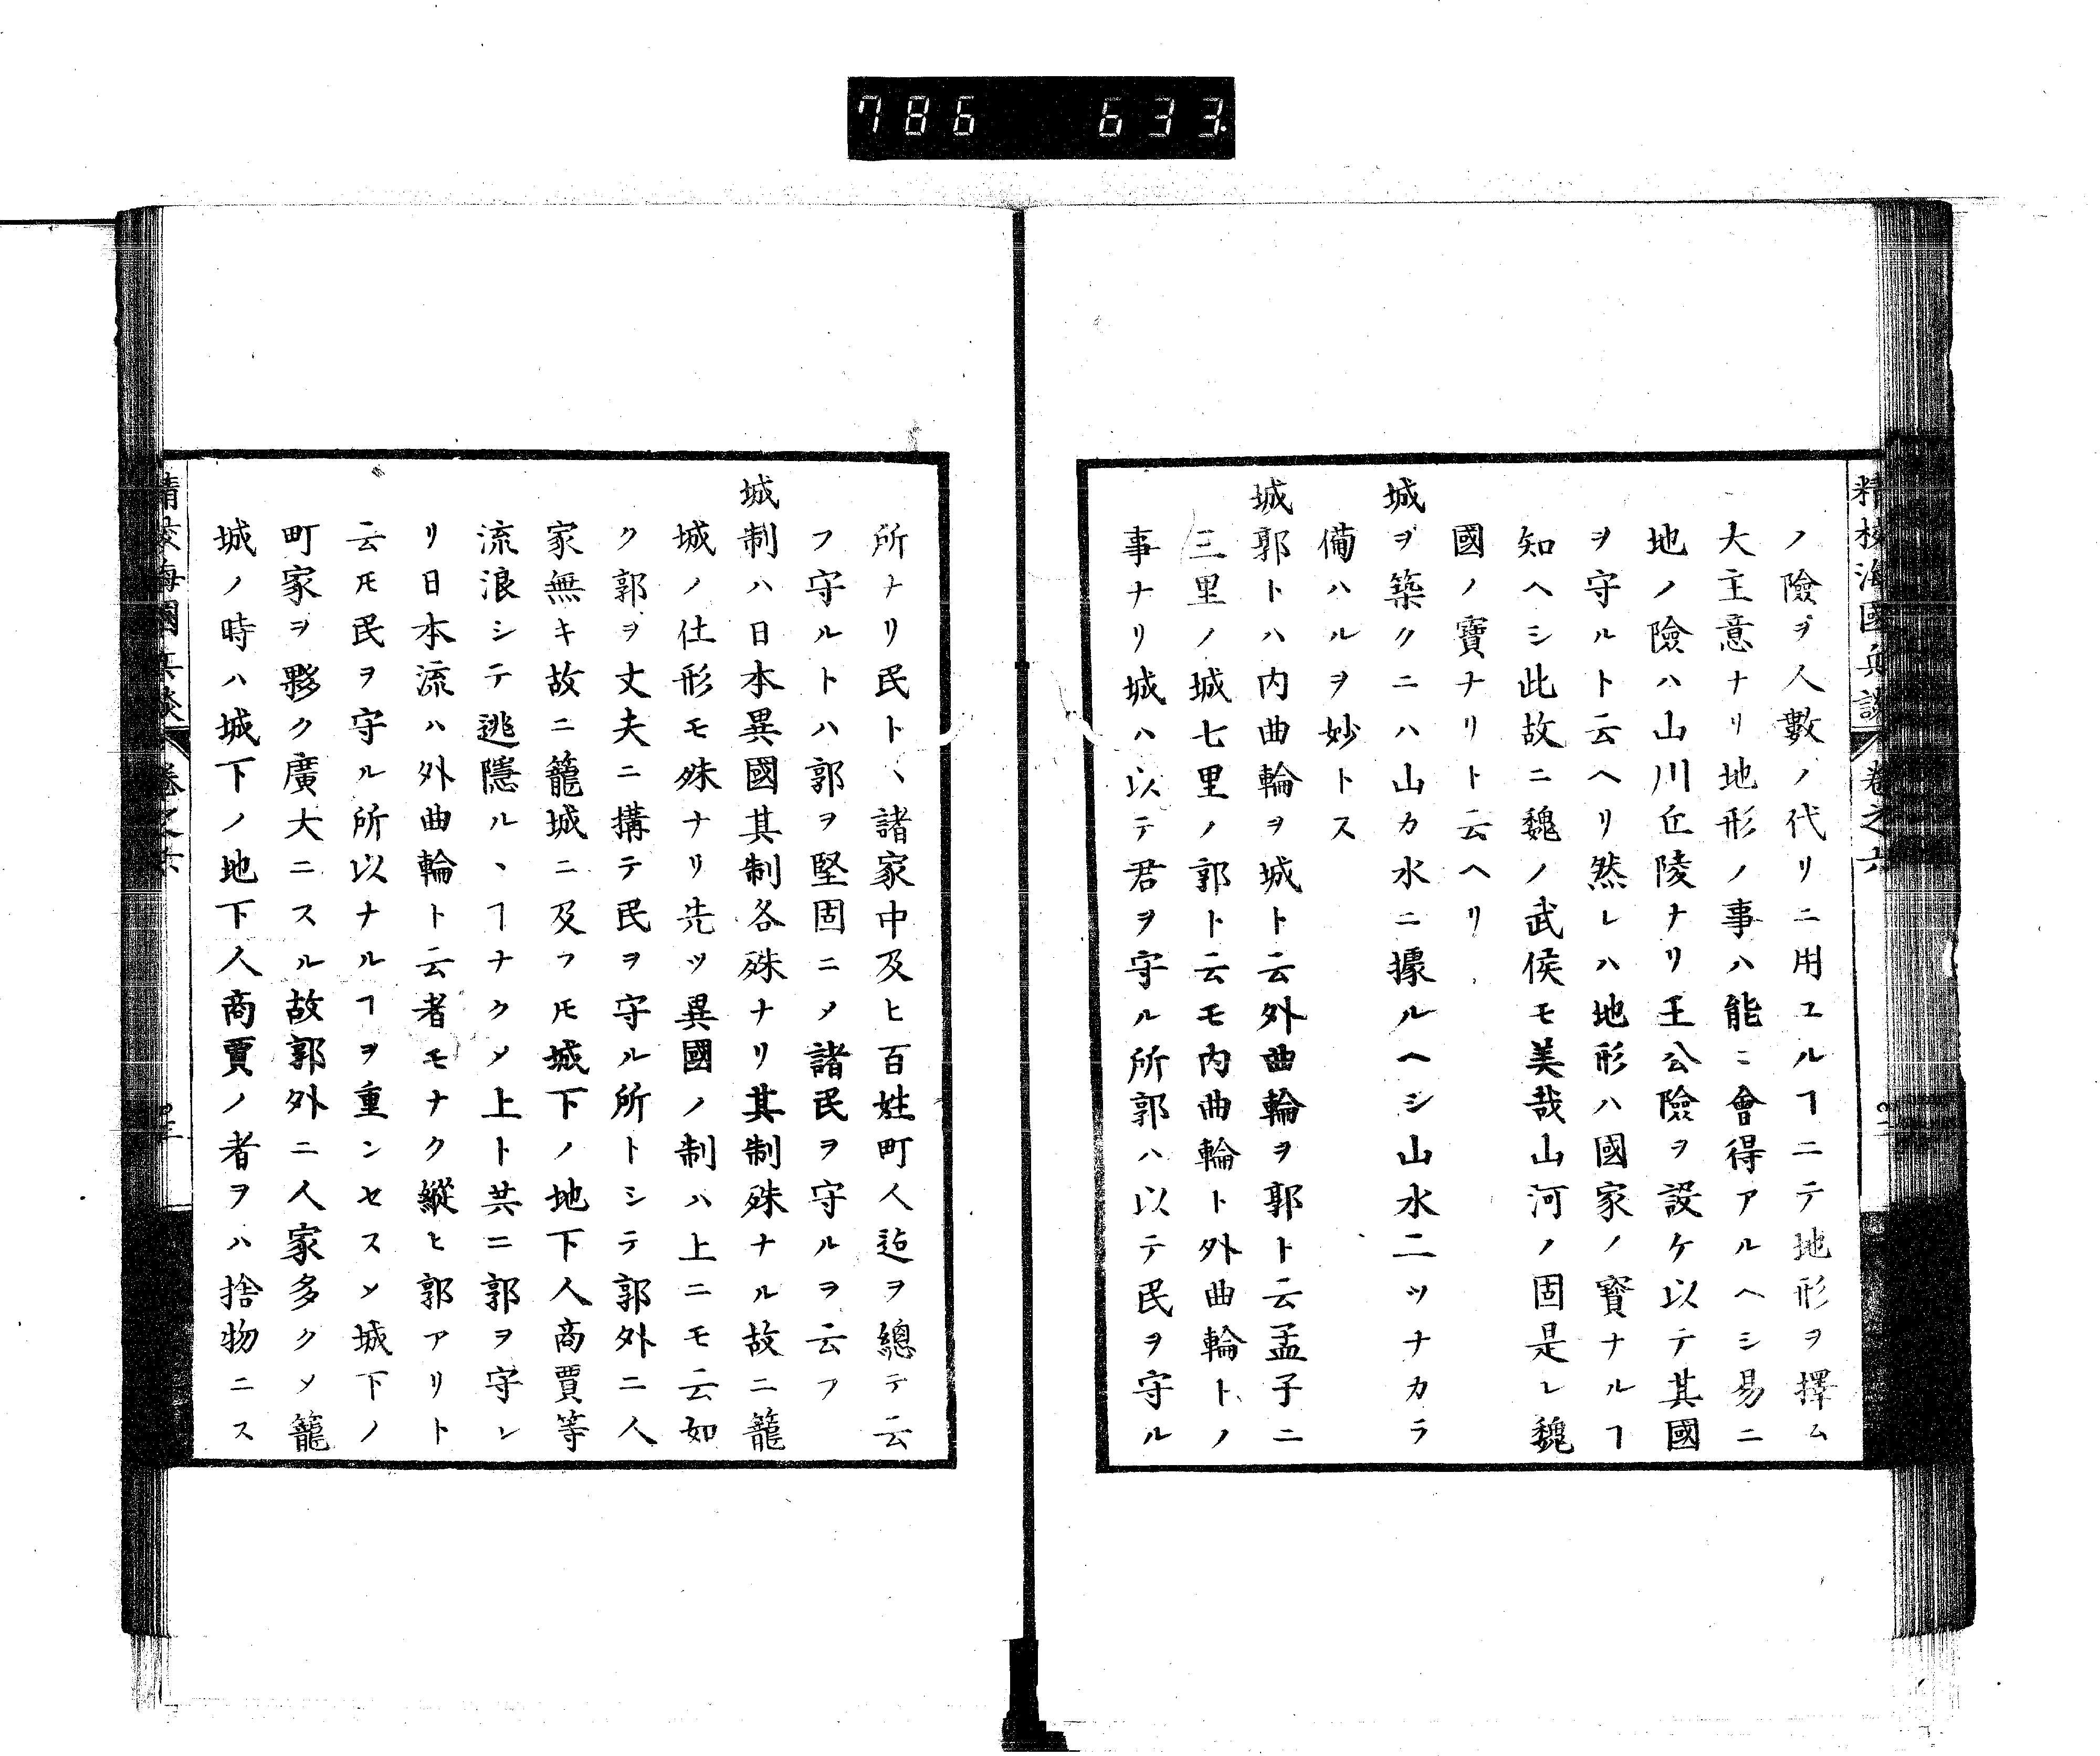 786 633
精校海國兵談 卷之六
ノ險ヲ人數ノ代リニ用ユルヿニテ地形ヲ擇ム
大主意ナリ地形ノ事ハ能ニ會得アルヘシ易ニ
地ノ險ハ山川丘陵ナリ王公險ヲ設ケ以テ其國
ヲ守ルト云ヘリ然レハ地形ハ國家ノ寳ナルヿ
知ヘシ此故ニ魏ノ武侯モ美哉山河ノ固是レ魏
國ノ寶ナリト云ヘリ
城ヲ築クニハ山カ水ニ據ルヘシ山水二ツナカラ
備ハルヲ妙トス
城郭トハ内曲輪ヲ城ト云外曲輪ヲ郭ト云孟子ニ
三里ノ城七里ノ郭ト云モ内曲輪ト外曲輪トノ
事ナリ城ハ以テ君ヲ守ル所郭ハ以テ民ヲ守ル
所ナリ民トヽ諸家中及ヒ百姓町人迠ヲ總テ云
フ守ルトハ郭ヲ堅固ニ〆諸民ヲ守ルヲ云フ
城制ハ日本異國其制各殊ナリ其制殊ナル故ニ籠
城ノ仕形モ殊ナリ先ッ異國ノ制ハ上ニモ云如
ク郭ヲ丈夫ニ搆テ民ヲ守ル所トシテ郭外ニ人
家無キ故ニ籠城ニ及フ𪜈城下ノ地下人商賈等
流浪シテ逃隱ルヽヿナク〆上ト共ニ郭ヲ守レ
リ日本流ハ外曲輪ト云者モナク縱ヒ郭アリト
云𪜈民ヲ守ル所以ナルヿヲ重ンセス〆城下ノ
町家ヲ夥ク廣大ニスル故郭外ニ人家多ク〆籠
城ノ時ハ城下ノ地下人商賈ノ者ヲハ捨物ニス
精校海國兵談 卷之六